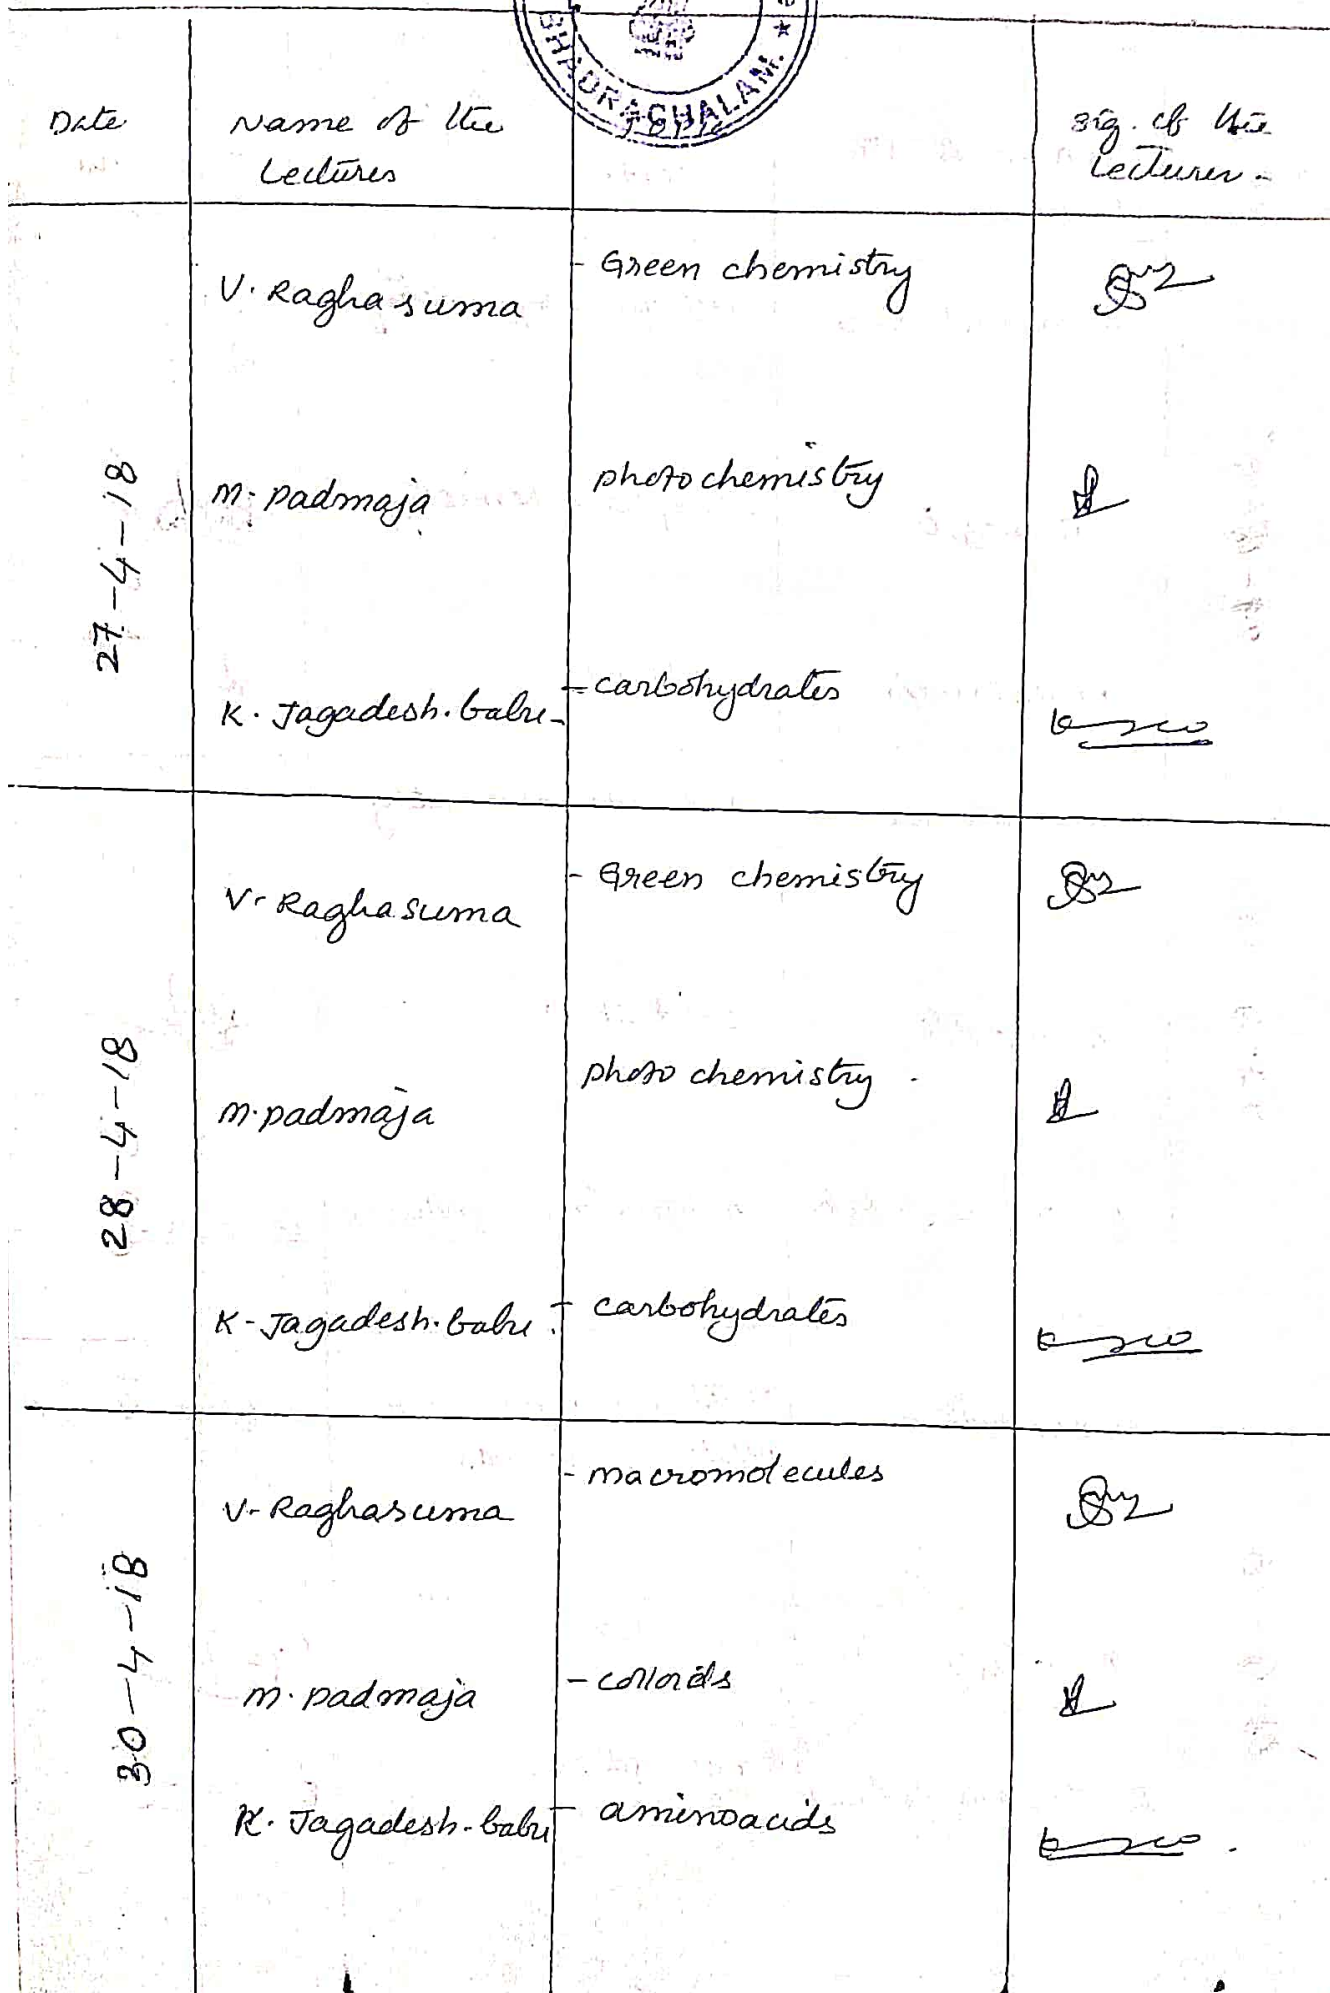 BHADRACHALAM. ★
Date Name of the Topic sig. of the
Lectures Lecturer.
V. Raghasuma - Green chemistry
27-4-18
M. Padmaja photochemistry
K. Jagadesh. babu - carbohydrates
V. Raghasuma - Green chemistry
28-4-18
M. padmaja photo chemistry .
K - Jagadesh. babu - carbohydrates
V. Raghasuma - macromolecules
30-4-18
M. padmaja - colloids
K. Jagadesh. babu - aminoacids